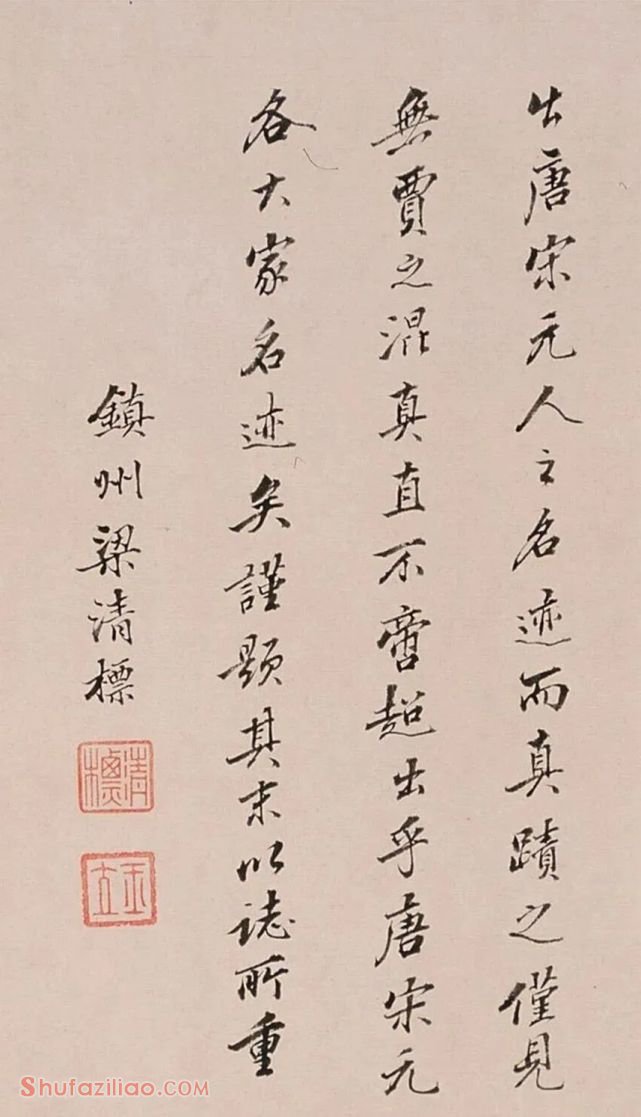 出唐宋元人之名迹而真蹟之僅見
無賈之混真直不啻超出乎唐宋元
各大家名迹矣謹題其末以誌所重
鎮州梁清標
清標
玉立
Shufaziliao.COM